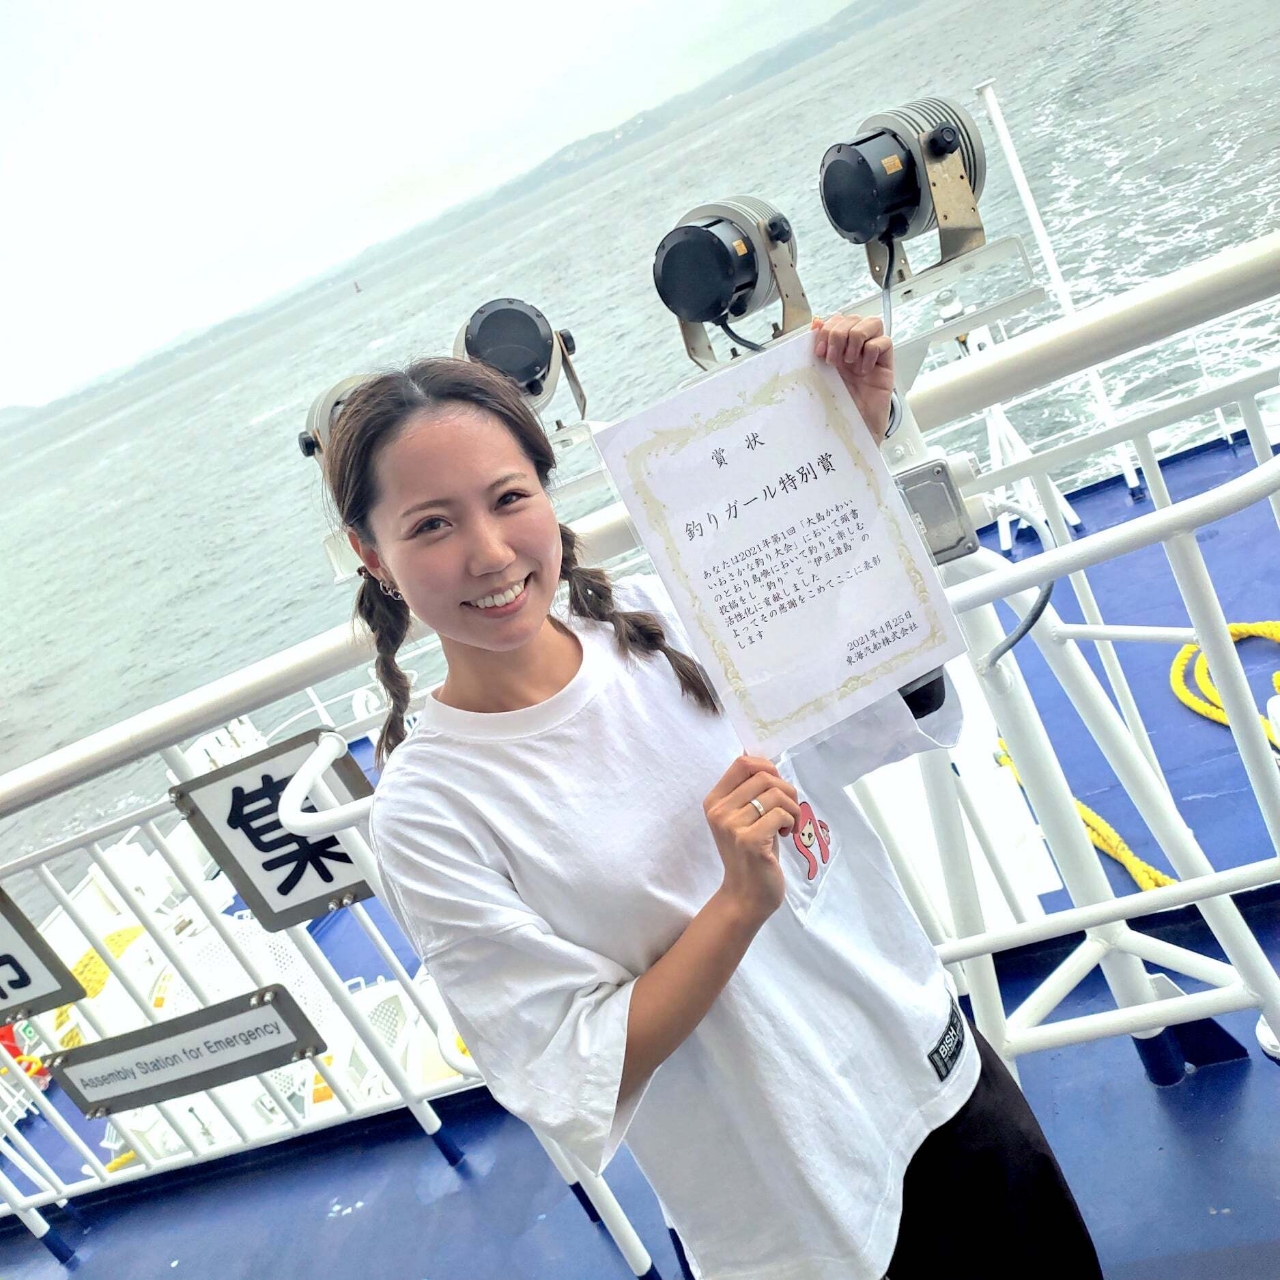 賞 状
釣りガール特別賞
あなたは2021年第1回「大島かわい
いおさかな釣り大会」において頭書
のとおり島嶼において釣りを楽しむ
投稿をし"釣り"と"伊豆諸島"の
活性化に貢献しました
よってその感謝をこめてここに表彰
します
2021年4月25日
東海汽船株式会社
集
Assembly Station for Emergency
BISH